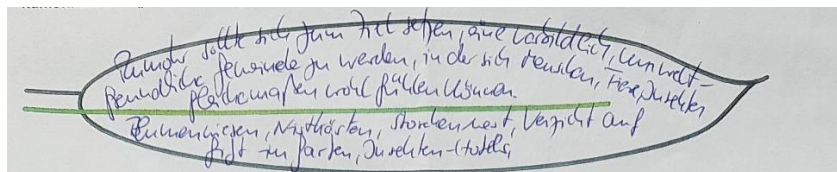 Rumohr sollte sich zum Ziel setzen, eine vorbildlich, umwelt-
freundliche Gemeinde zu werden, in der sich Menschen, Tiere, Insekten
gleichermaßen wohl fühlen können.
Blumenwiesen, Nistkästen, Storchennest, Verzicht auf
Gift im Garten, Insekten-Hotels,